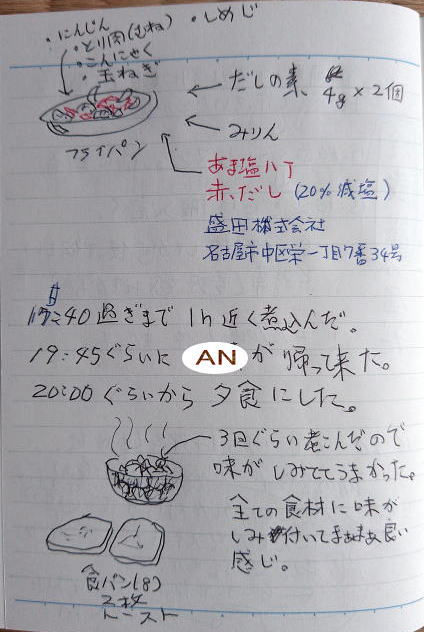 ・にんじん
・とり肉(むね)
・こんにゃく
・玉ねぎ
・しめじ
だしの素 4g×2個
みりん
フライパン
あま塩八丁
赤だし(20%減塩)
盛田株式会社
名古屋市中区栄一丁目7番34号
:40過ぎまで 1h近く煮込んだ。
19:45ぐらいに AN が帰って来た。
20:00ぐらいから夕食にした。
3回ぐらい煮こんだので
味がしみててうまかった。
全ての食材に味が
しみ付いてまぁまぁ良い
感じ。
食パン(8)
2枚
トースト